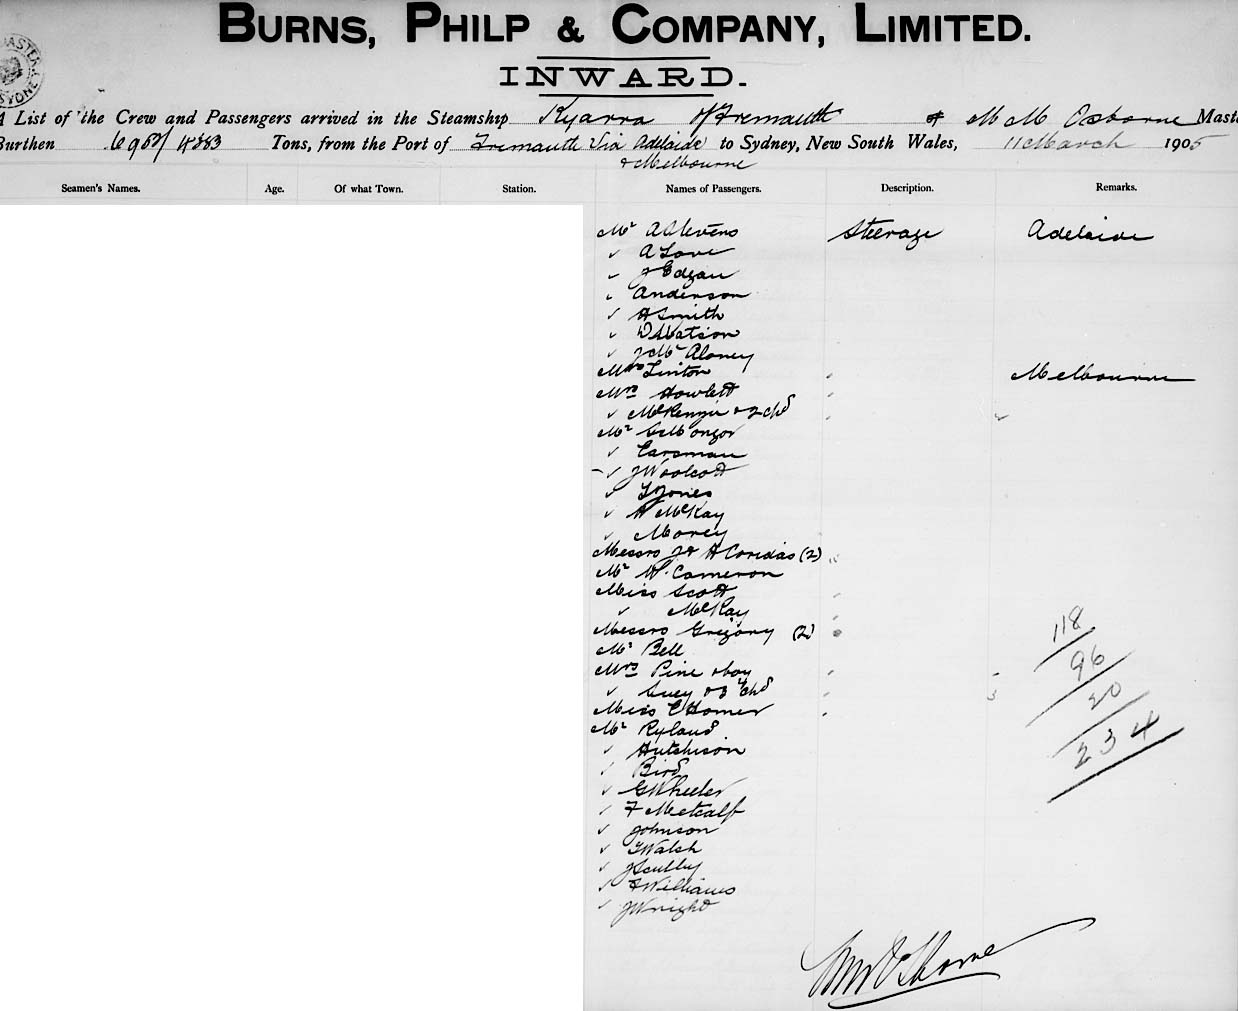 BURNS, PHILP & COMPANY, LIMITED.
INWARD.
A List of the Crew and Passengers arrived in the Steamship Kyarra of Fremantle M M Osborne Maste
Burthen 6953/4383 Tons, from the Port of Fremantle Via Adelaide to Sydney, New South Wales, 11 March 1905
& Melbourne
Seamen's Names. Age. Of what Town. Station. Names of Passengers. Description. Remarks.
Mr A Stevens Steerage Adelaide
✓ A Love
✓ J Edgar
✓ Anderson
✓ A Smith
✓ D Watson
✓ J Mc Aloney
Mrs Linton " Melbourne
Mrs Howlett "
✓ McKenzie & 2 chd "
Mr
✓ Carsman
✓ J Woolcott
✓ Jones
✓ McKay
✓ Morey
Messrs J & A Coridas (2) "
Mr W. Cameron
Miss Scott "
✓ McKay "
Messrs Gregory (2) "
Mr Bell
Mrs Pine & boy "
✓ Guey & 3 chd " 3
Miss E Homer "
Mr Ryland
✓ Hutchison
✓ Bird
✓ G Wheeler
✓ F Metcalf
✓ Johnson
✓ T Walsh
✓ J Scully
✓ F Williams
✓ J Wright
118
96
20
234
Osborne